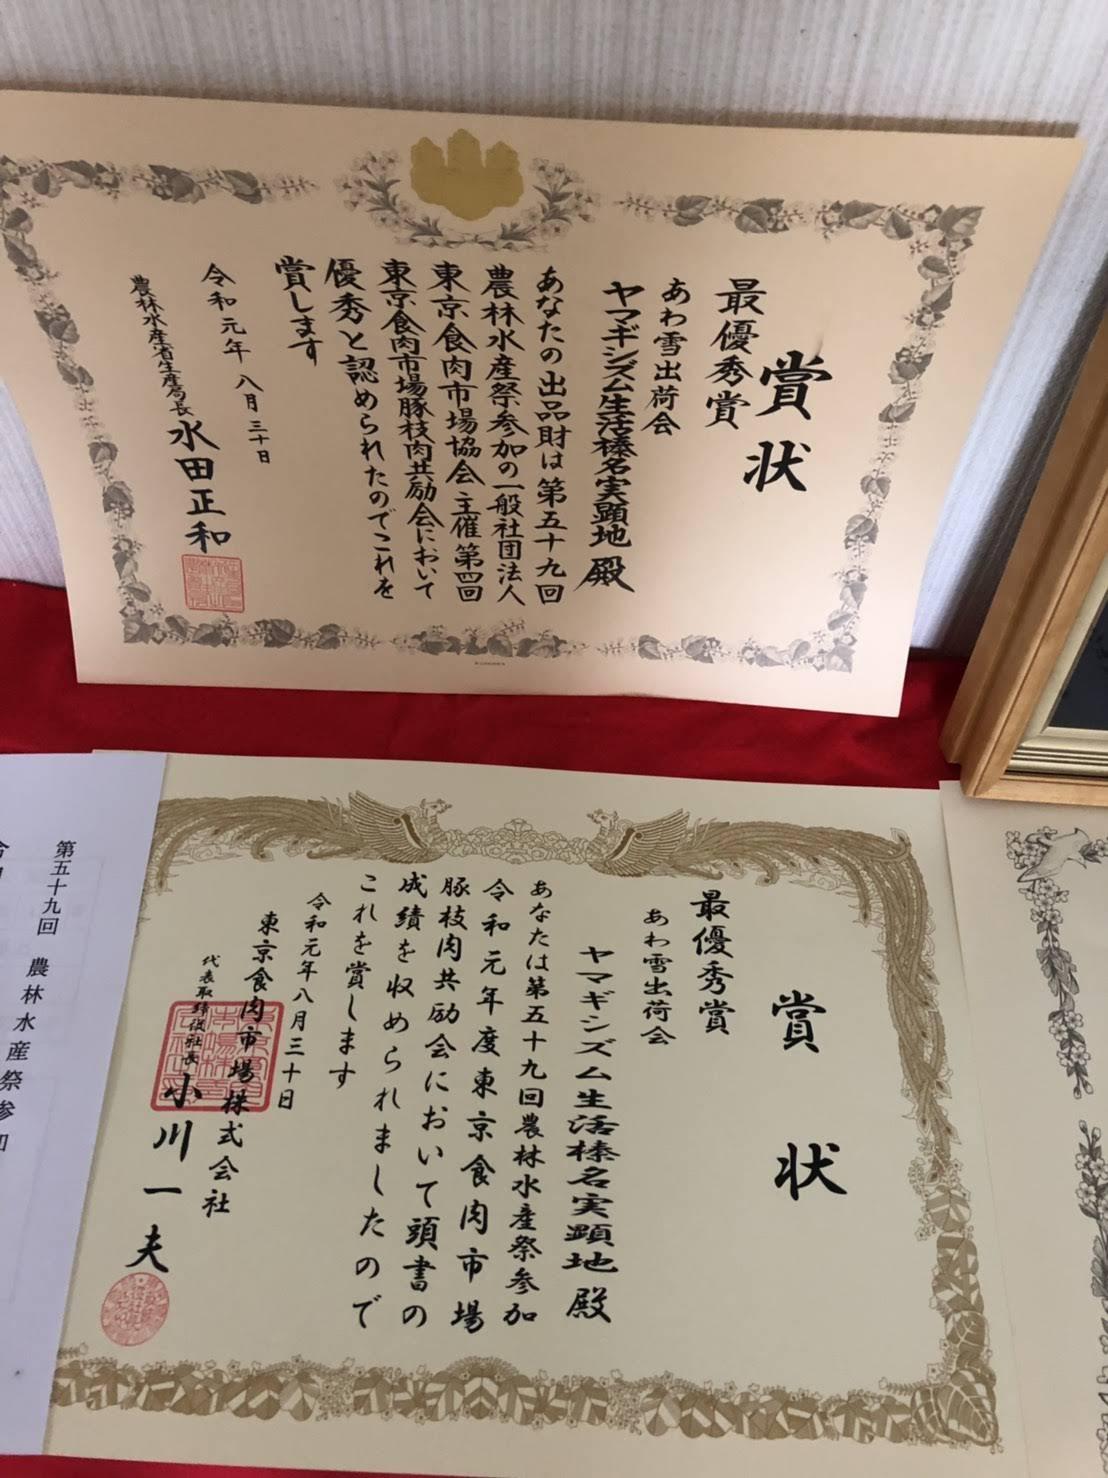 賞状
最優秀賞
あわ雪出荷会
ヤマギシズム生活榛名実顕地 殿
あなたの出品財は第五十九回
農林水産祭参加の一般社団法人
東京食肉市場協会主催第四回
東京食肉市場豚枝肉共励会において
優秀と認められたのでこれを
賞します
令和元年八月三十日
農林水産省生産局長 水田正和
賞状
最優秀賞
あわ雪出荷会
ヤマギシズム生活榛名実顕地 殿
あなたは第五十九回農林水産祭参加
令和元年度東京食肉市場
豚枝肉共励会において頭書の
成績を収められましたので
これを賞します
令和元年八月三十日
東京食肉市場株式会社
代表取締役社長 小川一夫
第五十九回 農林水産祭参加